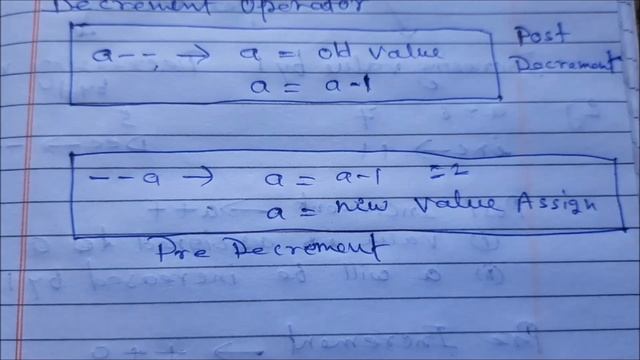 Decrement Operator
a--; → a = old value
a = a-1
Post
Decrement
--a → a = a-1 =2
a = new value Assign
Pre Decrement